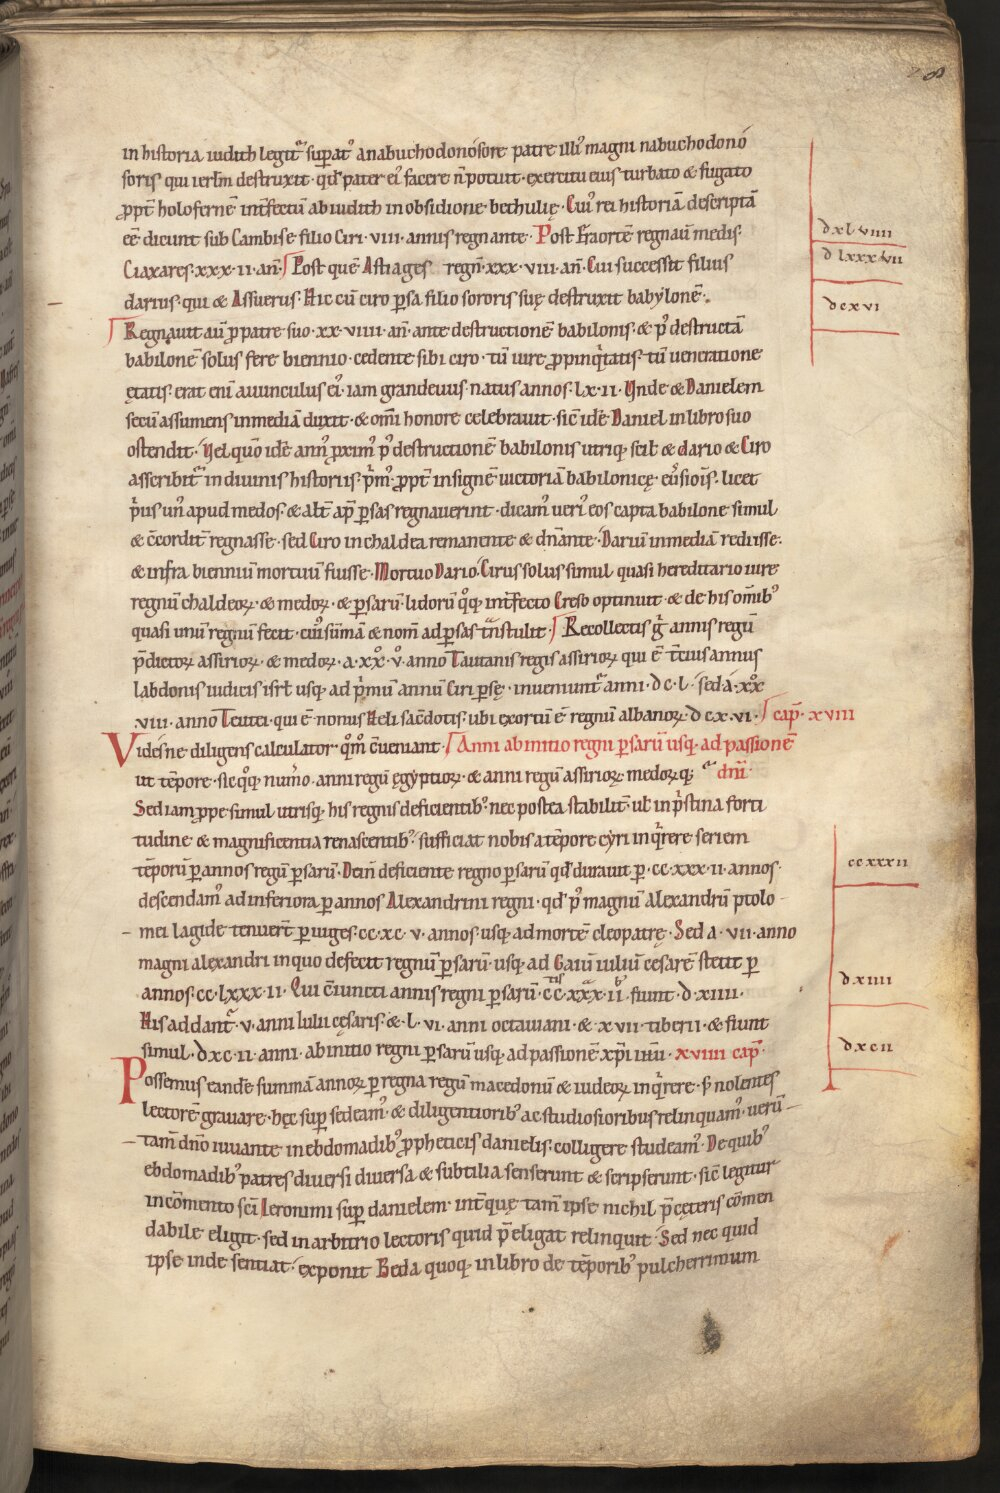 8
in historia iudith legit᷑ sup̱at᷒ anabuchodonósore patre illi᷒ magni nabuchodonó
soris qui ierlm̄ destruxit · qd̄ pater ei᷒ facere n̄ potuit · exercitu eius turbato & fugato
ꝓpt̄ holofernē int̄fectū ab iudith in obsidione bethulię · Cui᷒ rei historiā descriptā
eē dicunt sub Cambise filio Ciri · viii · annis regnante · Post fraortē regnau̅ medis
Ciaxares · xxx · ii · an̄ · Post quē Astiages regn̄ · xxx · viii · an̄ · Cui successit filius
darius · qui & Assuerus · Hic cū ciro ꝑsa filio sororis suę destruxit babylonē ·
Regnauit aū ꝓ patre suo · xx · viiii · an̄ · ante destructionē babilonis · & p᷒ destructā
babilonē solus fere biennio · cedente sibi ciro · tū iure ꝓpinq̇tatis · tū ueneratione
ętatis · erat eni̅ auunculus ei᷒ · iam grandeuus · natus annos · lx · ii · Ynde & Danielem
secū assumens in mediā duxit · & om̄i honore celebrauit · sic̄ idē Daniel in libro suo
ostendit · Vel quō idē ann᷒ ꝓxim᷒ p᷒ destructionē babilonis utriq; scil̄ & dario & Ciro
asscribit᷑ in diuinis historiis · p̍m᷒ · ꝓpt̄ insignē uictoriā babilonicę · eu̓sioīs · licet
p̍us un᷒ apud medos · & alt̄ ap̄ ꝑsas regnauerint · dicam᷒ ueri᷒ eos capta babilone simul
& c̄cordit̄ regnasse · sed Ciro in chaldea remanente & dn̄ante · Dariū in mediā rediisse ·
& infra bienniū mortuū fuisse · Mortuo Dario · Cirus solus simul quasi hereditario iure
regnū chaldeoꝝ · & medoꝝ · & ꝑsarū · lidorū q̊q; int̄fecto Creso optinuit · & de his om̄ib᷒
quasi unū regnū fecit · cui᷒ sūmā & nom̄ ad ꝑsas t̄nstulit · Recollectis g̍ annis regū
p̄dictoꝝ assirioꝝ · & medoꝝ · a · xx̊ · v̊ · anno Tautanis regis assirioꝝ qui ē t̄cius annus
labdonis iudicis isrl̄ usq; ad p̍mū annū Ciri ꝑsę · inueniunt᷑ anni · dc · l · sed á · xx̊
viii · anno Teutei · qui ē nonus Heli sac̄dotis · ubi exortū ē regnū albanoꝝ · dc x · vi · cap̄ · xviii
Videsne diligens calculator · q̊m᷒ c̄ueniant · Anni ab initio regni ꝑsarū usq; ad passionē
ut tēpore · sic q̊q; num̓o · anni regū ęgyptioꝝ · & anni regū assirioꝝ medorūq; dn̄i
Sed iam ꝓpe simul utrisq; his regnis deficientib᷒ · nec postea stabilit̄ · ul̄ in p̍stina forti
tudine & magnificentia renascentib᷒ · sufficiat nobis a tēpore cyri inq̇rere seriem
tēporū ꝑ annos regū ꝑsarū · Dein̄ deficiente regno ꝑsarū qd̄ durauit ꝑ · cc · xxx · ii · annos ·
descendam᷒ ad inferiora ꝑ annos Alexandrini regni · qd̄ p᷒ magnū alexandrū ptolo
mei lagide tenuer̄t ꝑ iuges · cc · xc · v · annos · usq; ad mortē cleopatrę · Sed a · vii · anno
magni alexandri in quo defecit regnū ꝑsarū · usq; ad Gaiū iuliū cesarē stetit ꝑ
annos · cc · lxxx · ii · Qui c̄iuncti annis regni ꝑsarū · cc̄ · xxx · ii · fiunt · d · xiiii ·
His addant᷑ · v · anni Iulii cęsaris · & · l · vi · anni octauiani · & x vii · tiberii · & fiunt
simul · dxc · ii · anni · ab initio regni ꝑsarū usq; ad passionē xp̄i ih̄u · xviiii cap̄ ·
Possemus eandē summā annoꝝ ꝑ regna regū macedonū & iudeoꝝ inq̇rere · s̓ nolentes
lectorē grauare · hęc sup̱sedeam᷒ · & diligentiorib᷒ ac studiosioribus relinquam᷒ · uerū
tam̄ dn̄o iuuante in ebdomadib᷒ ꝓpheticis danielis · colligere studeam᷒ · De quib᷒
ebdomadib᷒ patres diuersi diuersa & subtilia senserunt & scripserunt · sic̄ legitur
in cōmento sc̄i Ieronimi sup̱ danielem · int̄ quę tam̄ ipse nichil p̄ cęteris cōmen
dabile eligit · sed in arbitrio lectoris quid p̄eligat relinquit · Sed nec quid
ipse inde sentiat · exponit Beda quoq; in libro de tēporib᷒ pulcherrimum
dxlviiii
dlxxxvii
dcxvi
ccxxxii
dxiiii
dxcii